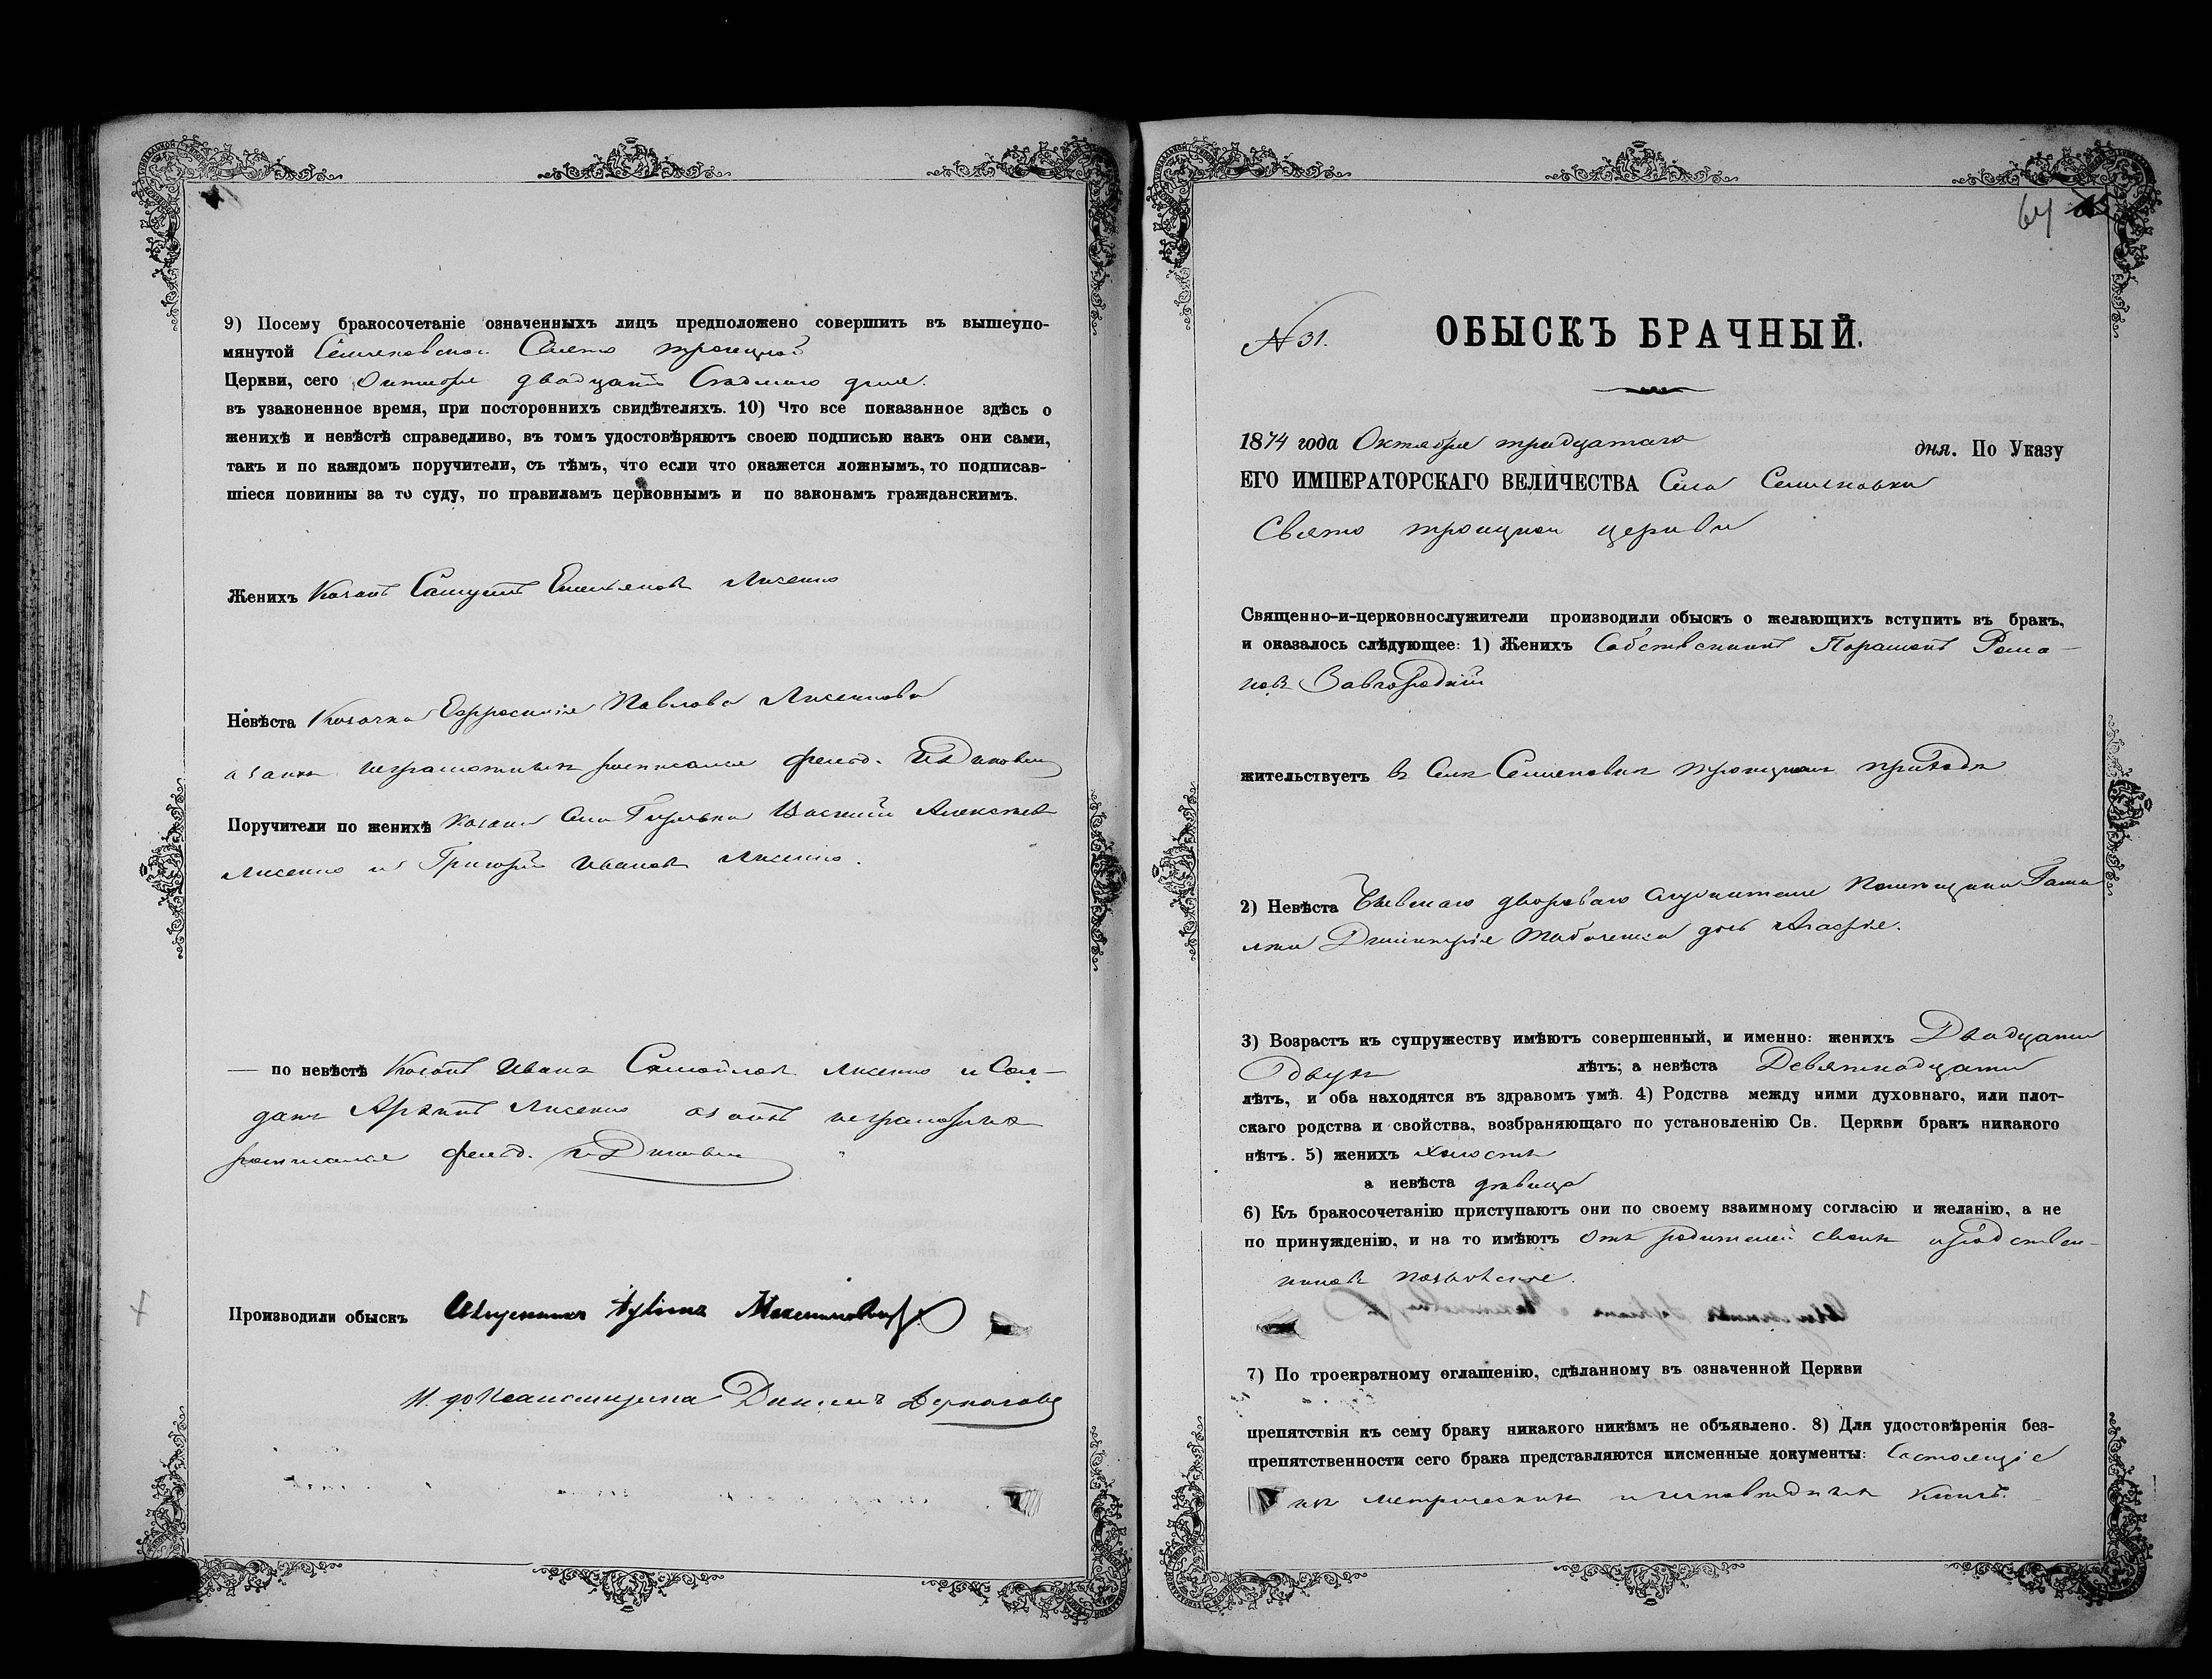 9) Посему бракосочетаніе означенныхъ лицъ предположено совершить въ вышеупо-
мянутой Семеновской Свято Троицкой
Церкви, сего Октября двадцать Седмаго дня.
въ узаконенное время, при постороннихъ свидѣтеляхъ. 10) Что все показанное здѣсь о
женихѣ и невѣстѣ справедливо, въ томъ удостовѣряютъ своею подписью какъ они сами,
такъ и по каждомъ поручители, съ тѣмъ, что если что окажется ложнымъ, то подписав-
шіеся повинны за то суду, по правиламъ церковнымъ и по законамъ гражданскимъ.
Женихъ Козакъ Емельяновъ Лисенко
Невѣста Козачка Евфросинія Павлова Лисенкова
а за ихъ неграмотныхъ росписался
Поручители по женихѣ Козаки Села Василій Алексѣевъ
Лисенко и Григорій Ивановъ Лисенко.
— по невѣстѣ Козакъ Иванъ Самойловъ Лисенко и Сол-
датъ Лисенко а за нихъ неграмотныхъ
росписался
Производили обыскъ Священникъ Максимовичъ
И. д. Псаломщика Даніилъ
64
№ 31.
ОБЫСКЪ БРАЧНЫЙ.
1874 года Октября тридцатаго дня. По Указу
ЕГО ИМПЕРАТОРСКАГО ВЕЛИЧЕСТВА Села Семеновки
Свято Троицкой церкви
Священно-и-церковнослужители производили обыскъ о желающихъ вступить въ бракъ,
и оказалось слѣдующее: 1) Женихъ Собственникъ Парамонъ Рома-
новъ Завгородній
жительствуетъ въ Селѣ Семеновкѣ Троицкомъ приходѣ
2) Невѣста бывшаго двороваго служителя Помѣщика
Димитрія дочь Марія.
3) Возрастъ къ супружеству имѣютъ совершенный, и именно: женихъ Двадцати
Двухъ лѣтъ; а невѣста Девятнадцати
лѣтъ, и оба находятся въ здравомъ умѣ. 4) Родства между ними духовнаго, или плот-
скаго родства и свойства, возбраняющаго по установленію Св. Церкви бракъ никакого
нѣтъ. 5) женихъ холостъ
а невѣста дѣвица
6) Къ бракосочетанію приступаютъ они по своему взаимному согласію и желанію, а не
по принужденію, и на то имѣютъ отъ родителей своихъ и родствен-
никовъ позволеніе.
7) По троекратному оглашенію, сдѣланному въ означенной Церкви
препятствія къ сему браку никакого никѣмъ не объявлено. 8) Для удостовѣренія без-
препятственности сего брака представляются писменные документы: Состоящіе
изъ метрическихъ и исповѣдныхъ книгъ.